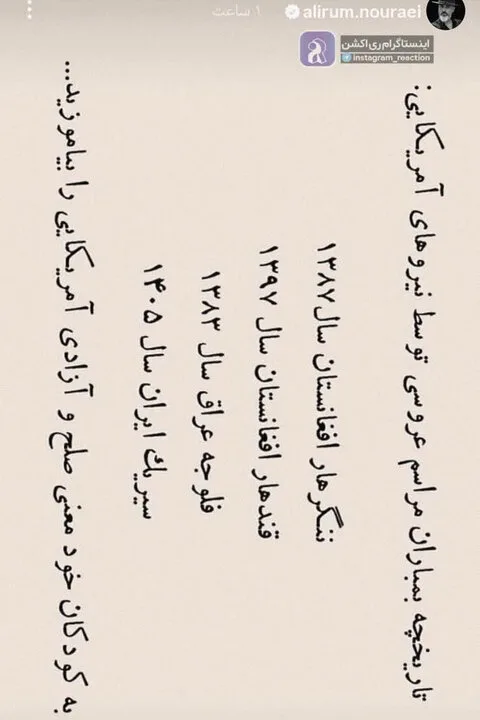 alirum.nouraei
۱ ساعت
اینستاگرام ری‌اکشن
instagram_reaction
تاریخچه بمباران مراسم عروسی توسط نیروهای آمریکایی:
ننگرهار افغانستان سال ۱۳۸۷
قندهار افغانستان سال ۱۳۹۷
فلوجه عراق سال ۱۳۸۳
سیریك ایران سال ۱۴۰۵
به کودکان خود معنی صلح و آزادی آمریکایی را بیاموزید...